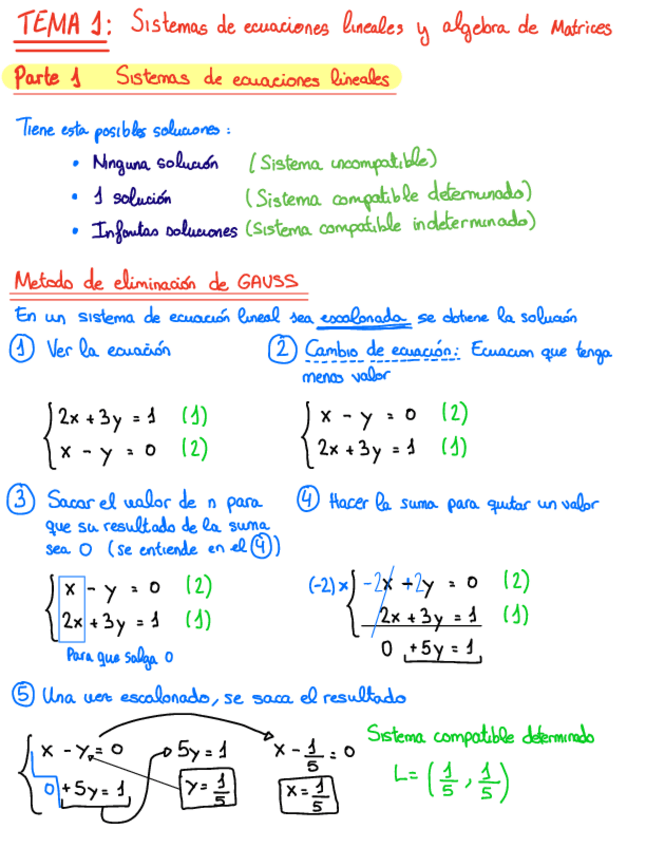 TEMA 1: Sistemas de ecuaciones lineales y algebra de Matrices
Parte 1 Sistemas de ecuaciones lineales
Tiene esta posibles soluciones:
• Ninguna solución (Sistema incompatible)
• 1 solución (Sistema compatible determinado)
• Infinitas soluciones (Sistema compatible indeterminado)
Metodo de eliminación de GAUSS
En un sistema de ecuación lineal sea escalonada se obtiene la solución
① Ver la ecuación
2x + 3y = 1 (1)
x - y = 0 (2)
② Cambio de ecuación: Ecuacion que tenga
menos valor
x - y = 0 (2)
2x + 3y = 1 (1)
③ Sacar el valor de n para
que su resultado de la suma
sea 0 (se entiende en el ④)
x - y = 0 (2)
2x + 3y = 1 (1)
Para que salga 0
④ Hacer la suma para quitar un valor
(-2) x -2x + 2y = 0 (2)
2x + 3y = 1 (1)
0 + 5y = 1
⑤ Una vez escalonado, se saca el resultado
x - y = 0
0 + 5y = 1
5y = 1
y = 1/5
x - 1/5 = 0
x = 1/5
Sistema compatible determinado
L = (1/5, 1/5)